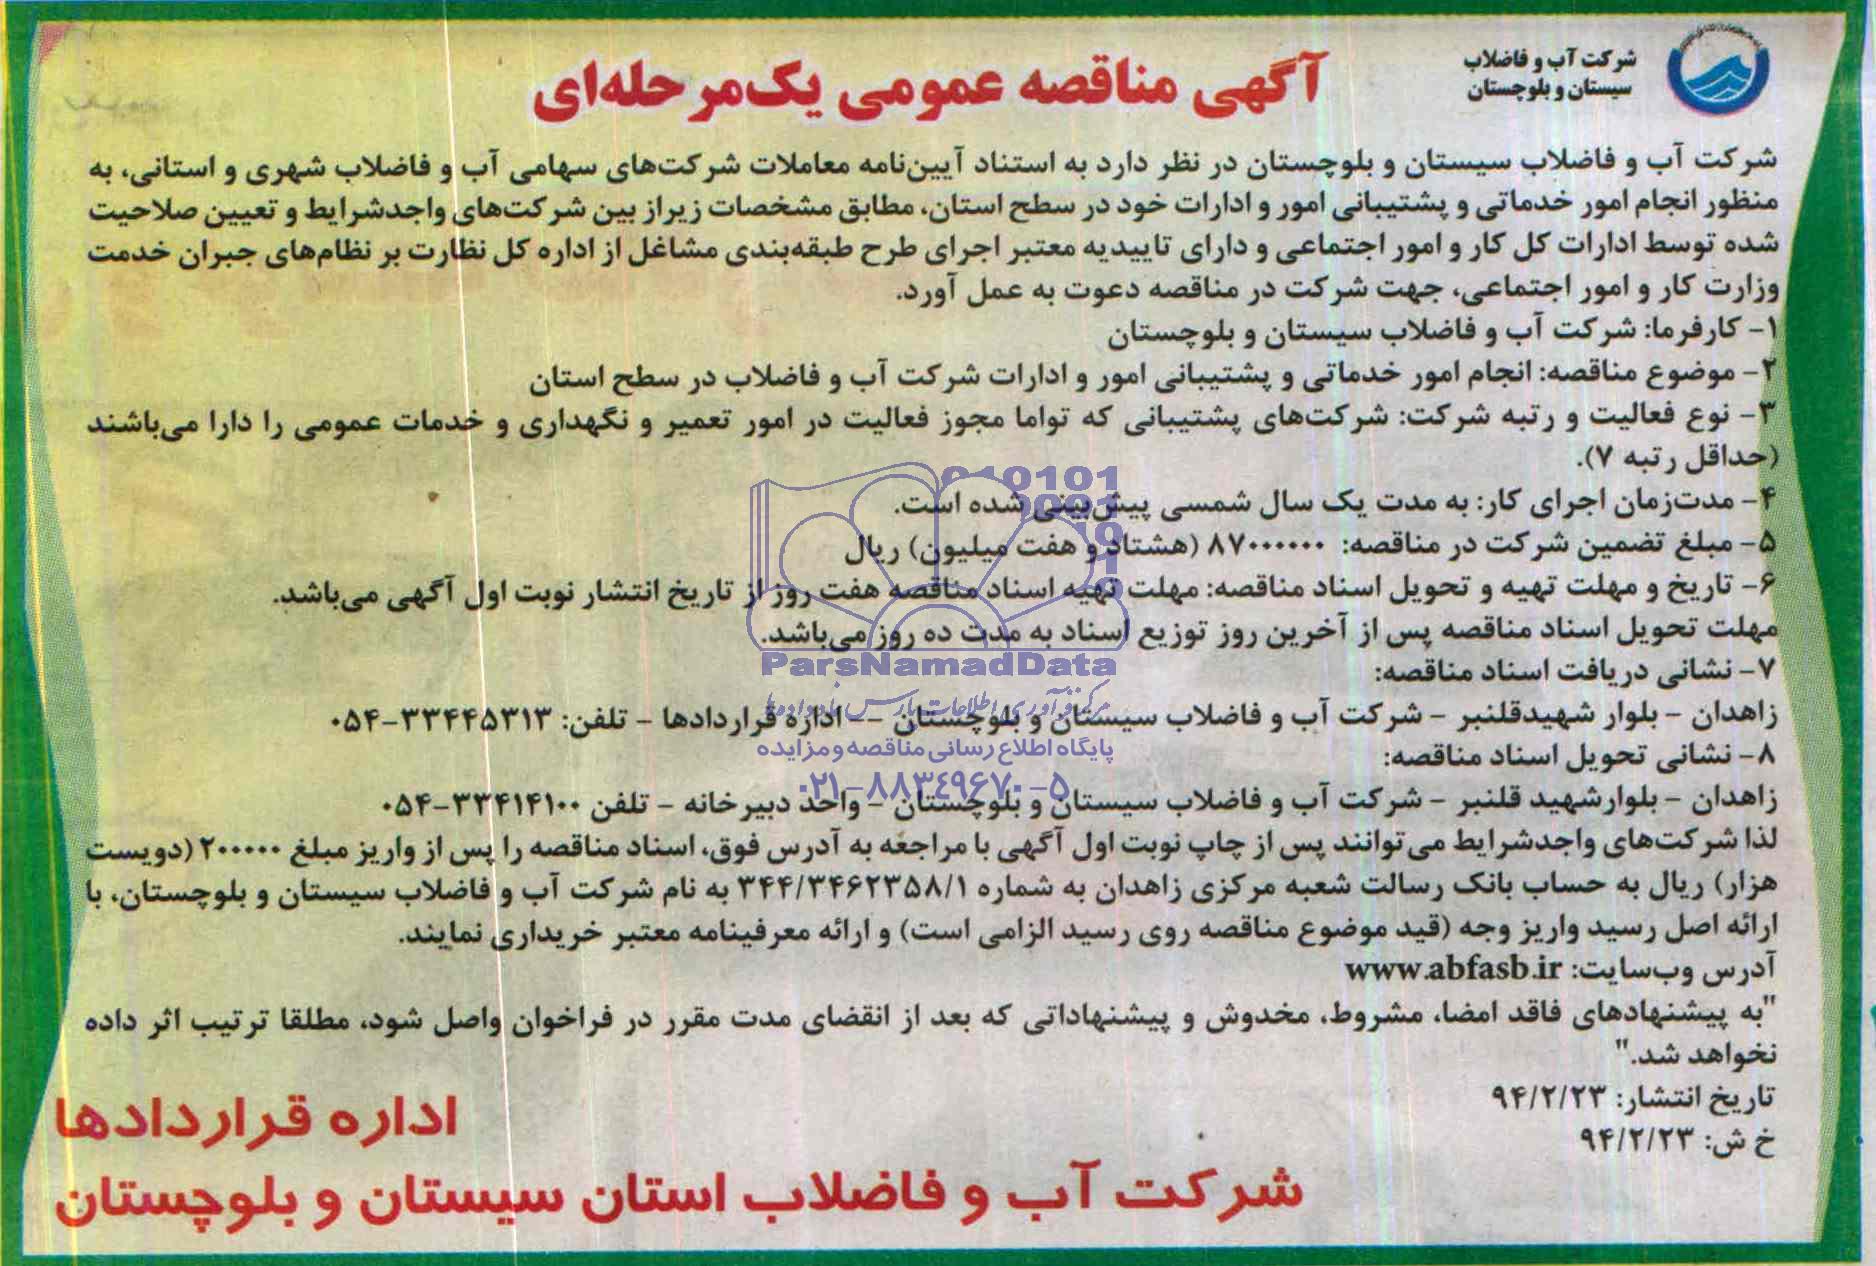 شرکت آب و فاضلاب
سیستان و بلوچستان
آگهی مناقصه عمومی یک‌مرحله‌ای
شرکت آب و فاضلاب سیستان و بلوچستان در نظر دارد به استناد آیین‌نامه معاملات شرکت‌های سهامی آب و فاضلاب شهری و استانی، به
منظور انجام امور خدماتی و پشتیبانی امور و ادارات خود در سطح استان، مطابق مشخصات زیراز بین شرکت‌های واجدشرایط و تعیین صلاحیت
شده توسط ادارات کل کار و امور اجتماعی و دارای تاییدیه معتبر اجرای طرح طبقه‌بندی مشاغل از اداره کل نظارت بر نظام‌های جبران خدمت
وزارت کار و امور اجتماعی، جهت شرکت در مناقصه دعوت به عمل آورد.
۱- کارفرما: شرکت آب و فاضلاب سیستان و بلوچستان
۲- موضوع مناقصه: انجام امور خدماتی و پشتیبانی امور و ادارات شرکت آب و فاضلاب در سطح استان
۳- نوع فعالیت و رتبه شرکت: شرکت‌های پشتیبانی که تواما مجوز فعالیت در امور تعمیر و نگهداری و خدمات عمومی را دارا می‌باشند
(حداقل رتبه ۷).
۴- مدت‌زمان اجرای کار: به مدت یک سال شمسی پیش‌بینی شده است.
۵- مبلغ تضمین شرکت در مناقصه: ۸۷۰۰۰۰۰۰ (هشتاد و هفت میلیون) ریال
۶- تاریخ و مهلت تهیه و تحویل اسناد مناقصه: مهلت تهیه اسناد مناقصه هفت روز از تاریخ انتشار نوبت اول آگهی می‌باشد.
مهلت تحویل اسناد مناقصه پس از آخرین روز توزیع اسناد به مدت ده روز می‌باشد.
ParsNamadData
۷- نشانی دریافت اسناد مناقصه:
مرکز فرآوری اطلاعات پارس نماد داده‌ها
زاهدان - بلوار شهیدقلنبر - شرکت آب و فاضلاب سیستان و بلوچستان -- اداره قراردادها - تلفن: ۳۳۴۴۵۳۱۳-۰۵۴
پایگاه اطلاع رسانی مناقصه و مزایده
۸- نشانی تحویل اسناد مناقصه:
۰۲۱-۸۸۳۴۹۶۷۰-۵
زاهدان - بلوارشهید قلنبر - شرکت آب و فاضلاب سیستان و بلوچستان - واحد دبیرخانه - تلفن ۳۳۴۱۴۱۰۰-۰۵۴
لذا شرکت‌های واجدشرایط می‌توانند پس از چاپ نوبت اول آگهی با مراجعه به آدرس فوق، اسناد مناقصه را پس از واریز مبلغ ۲۰۰۰۰۰ (دویست
هزار) ریال به حساب بانک رسالت شعبه مرکزی زاهدان به شماره ۳۴۴/۳۴۶۲۳۵۸/۱ به نام شرکت آب و فاضلاب سیستان و بلوچستان، با
ارائه اصل رسید واریز وجه (قید موضوع مناقصه روی رسید الزامی است) و ارائه معرفینامه معتبر خریداری نمایند.
آدرس وب‌سایت: www.abfasb.ir
"به پیشنهادهای فاقد امضا، مشروط، مخدوش و پیشنهاداتی که بعد از انقضای مدت مقرر در فراخوان واصل شود، مطلقا ترتیب اثر داده
نخواهد شد."
تاریخ انتشار: ۹۴/۲/۲۳
خ ش: ۹۴/۲/۲۳
اداره قراردادها
شرکت آب و فاضلاب استان سیستان و بلوچستان